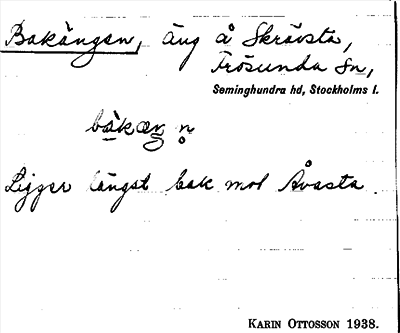 Bakängen, äng å Skråvsta,
Frösunda Sn,
Seminghundra hd, Stockholms l.
Ligger längst bak mot Åvasta.
KARIN OTTOSSON 1938.